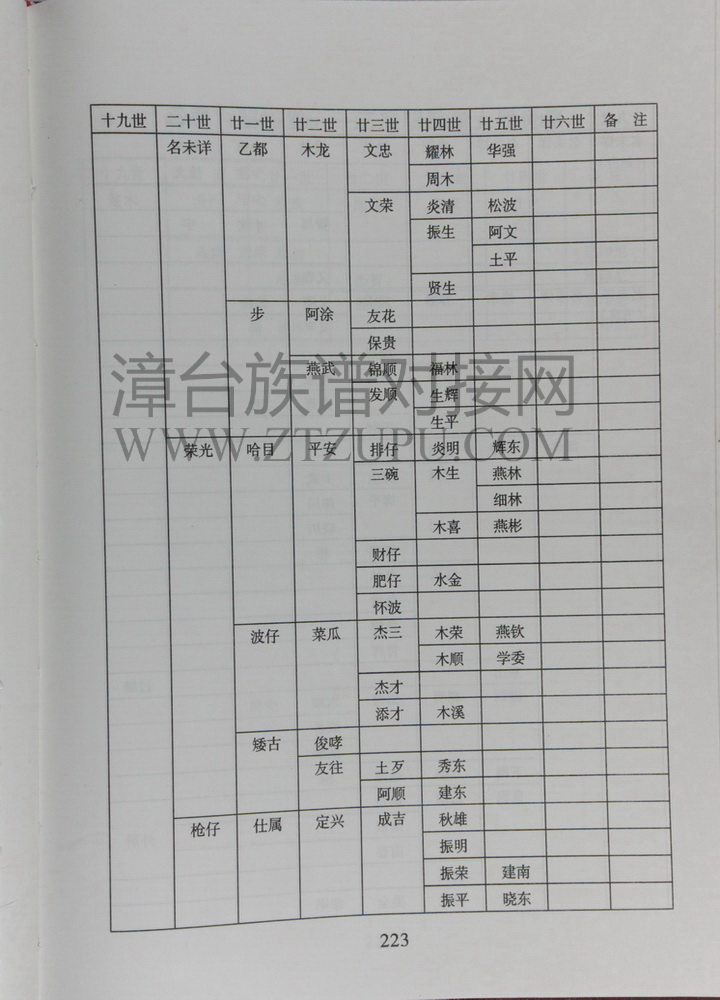 十九世 二十世 廿一世 廿二世 廿三世 廿四世 廿五世 廿六世 备 注
名未详 乙都 木龙 文忠 耀林 华强
周木
文荣 炎清 松波
振生 阿文
土平
贤生
步 阿涂 友花
保贵
燕武 锦顺 福林
发顺 生辉
生平
漳台族谱对接网
WWW.ZTZUPU.COM
荣光 哈目 平安 排仔 炎明 辉东
三碗 木生 燕林
细林
木喜 燕彬
财仔
肥仔 水金
怀波
波仔 菜瓜 杰三 木荣 燕钦
木顺 学委
杰才
添才 木溪
矮古 俊哮
友往 土歹 秀东
阿顺 建东
枪仔 仕属 定兴 成吉 秋雄
振明
振荣 建南
振平 晓东
223